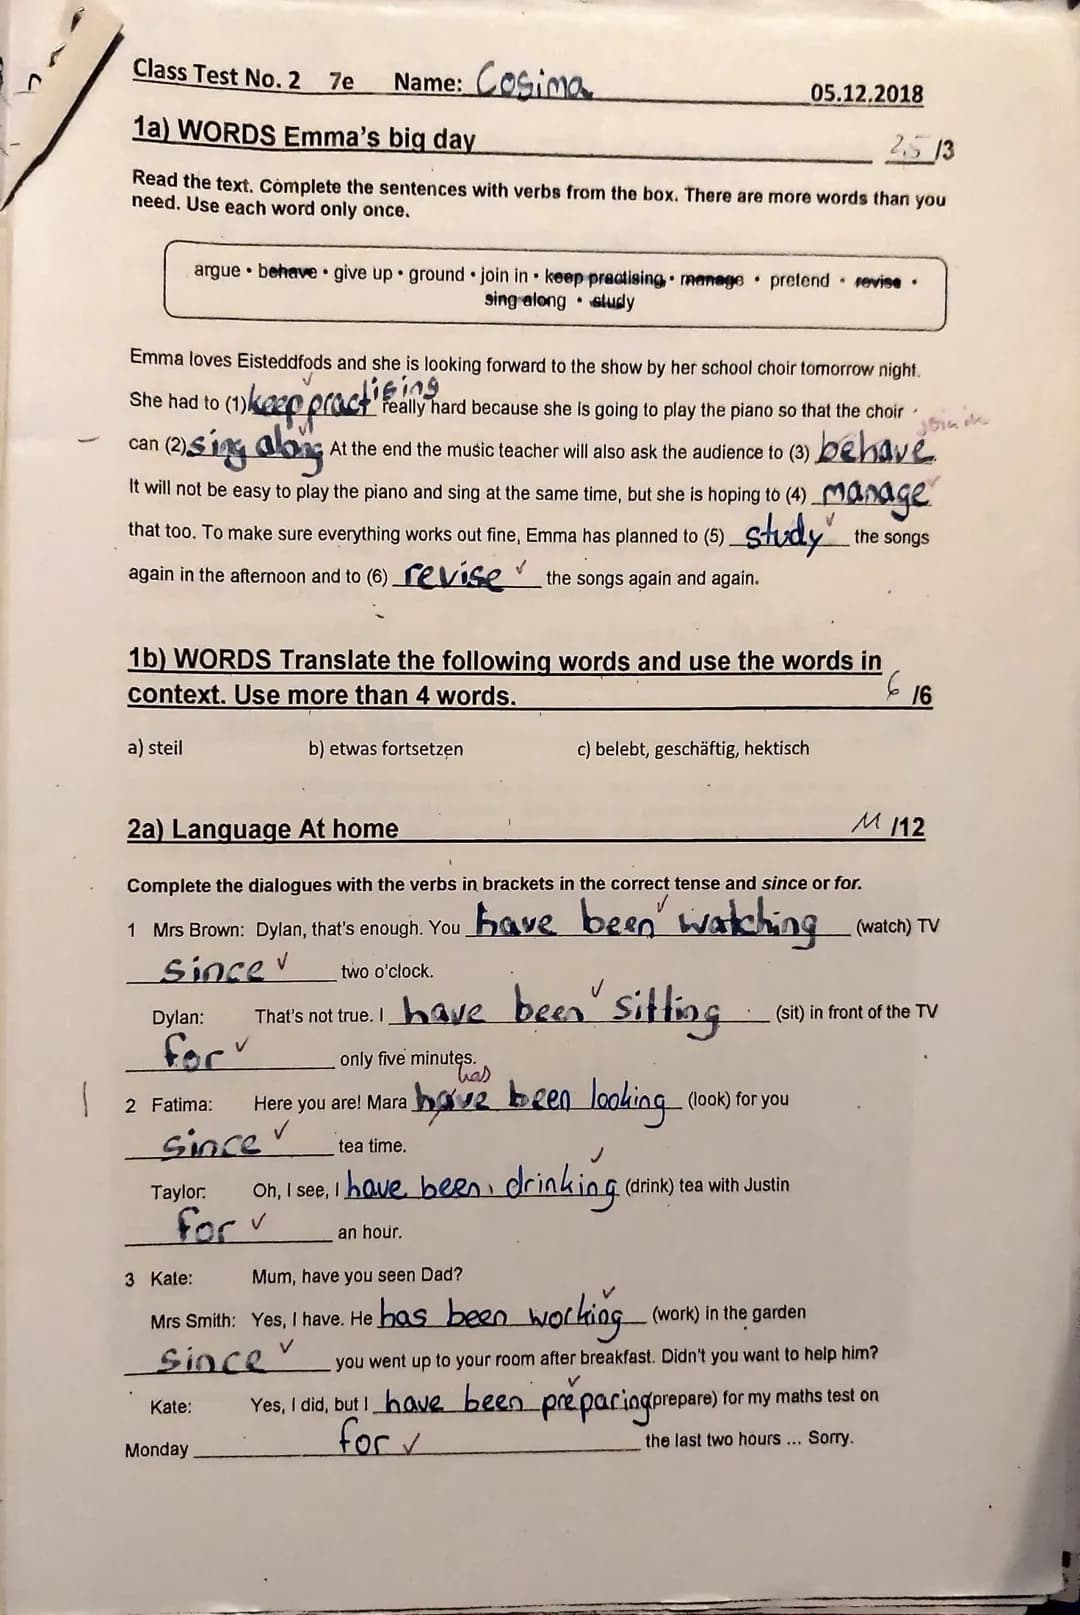 Class Test No. 2 7e Name: Cosima 05.12.2018
1a) WORDS Emma's big day 2,5 /3
Read the text. Complete the sentences with verbs from the box. There are more words than you
need. Use each word only once.
argue • behave • give up • ground • join in • keep practising • manage • pretend • revise •
sing along • study
Emma loves Eisteddfods and she is looking forward to the show by her school choir tomorrow night.
She had to (1) keep practising really hard because she is going to play the piano so that the choir
join in
can (2) sing along. At the end the music teacher will also ask the audience to (3) behave.
It will not be easy to play the piano and sing at the same time, but she is hoping to (4) manage
that too. To make sure everything works out fine, Emma has planned to (5) study the songs
again in the afternoon and to (6) revise the songs again and again.
1b) WORDS Translate the following words and use the words in
context. Use more than 4 words. 6 /6
a) steil b) etwas fortsetzen c) belebt, geschäftig, hektisch
2a) Language At home 11 /12
Complete the dialogues with the verbs in brackets in the correct tense and since or for.
1 Mrs Brown: Dylan, that's enough. You have been watching (watch) TV
since two o'clock.
Dylan: That's not true. I have been sitting (sit) in front of the TV
for only five minutes.
has
2 Fatima: Here you are! Mara have been looking (look) for you
since tea time.
Taylor: Oh, I see, I have been drinking (drink) tea with Justin
for an hour.
3 Kate: Mum, have you seen Dad?
Mrs Smith: Yes, I have. He has been working (work) in the garden
since you went up to your room after breakfast. Didn't you want to help him?
Kate: Yes, I did, but I have been preparing (prepare) for my maths test on
Monday for the last two hours ... Sorry.